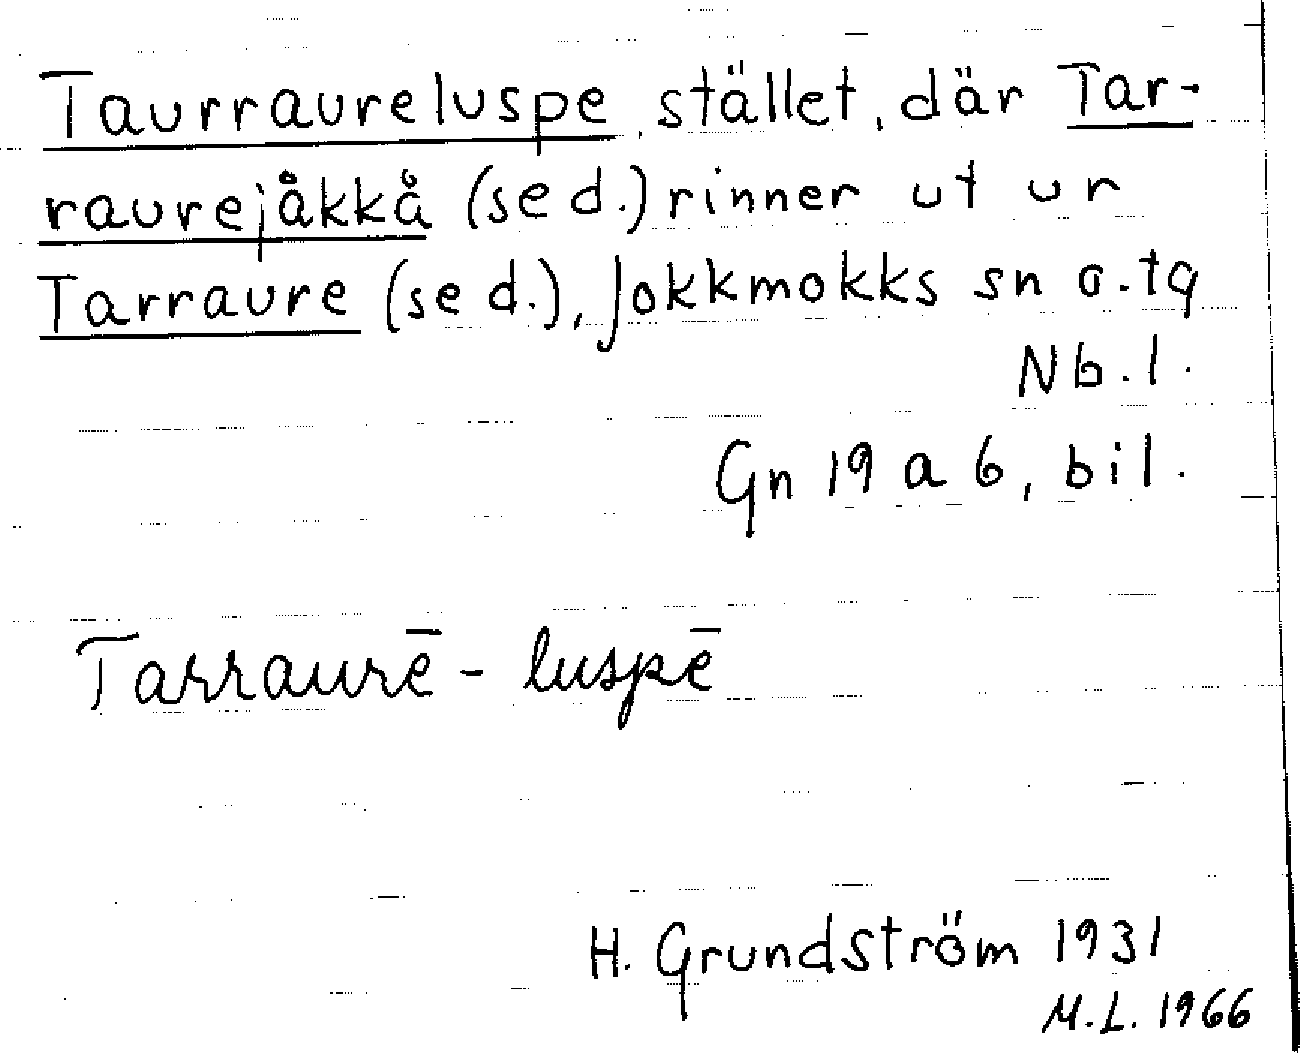 Taurraureluspe, stället, där Tar-
raurejåkkå (se d.) rinner ut ur
Tarraure (se d.), Jokkmokks sn o. tg
Nb. l.
Gn 19 a 6, bil.
Tarraurē - luspē
H. Grundström 1931
M.L. 1966